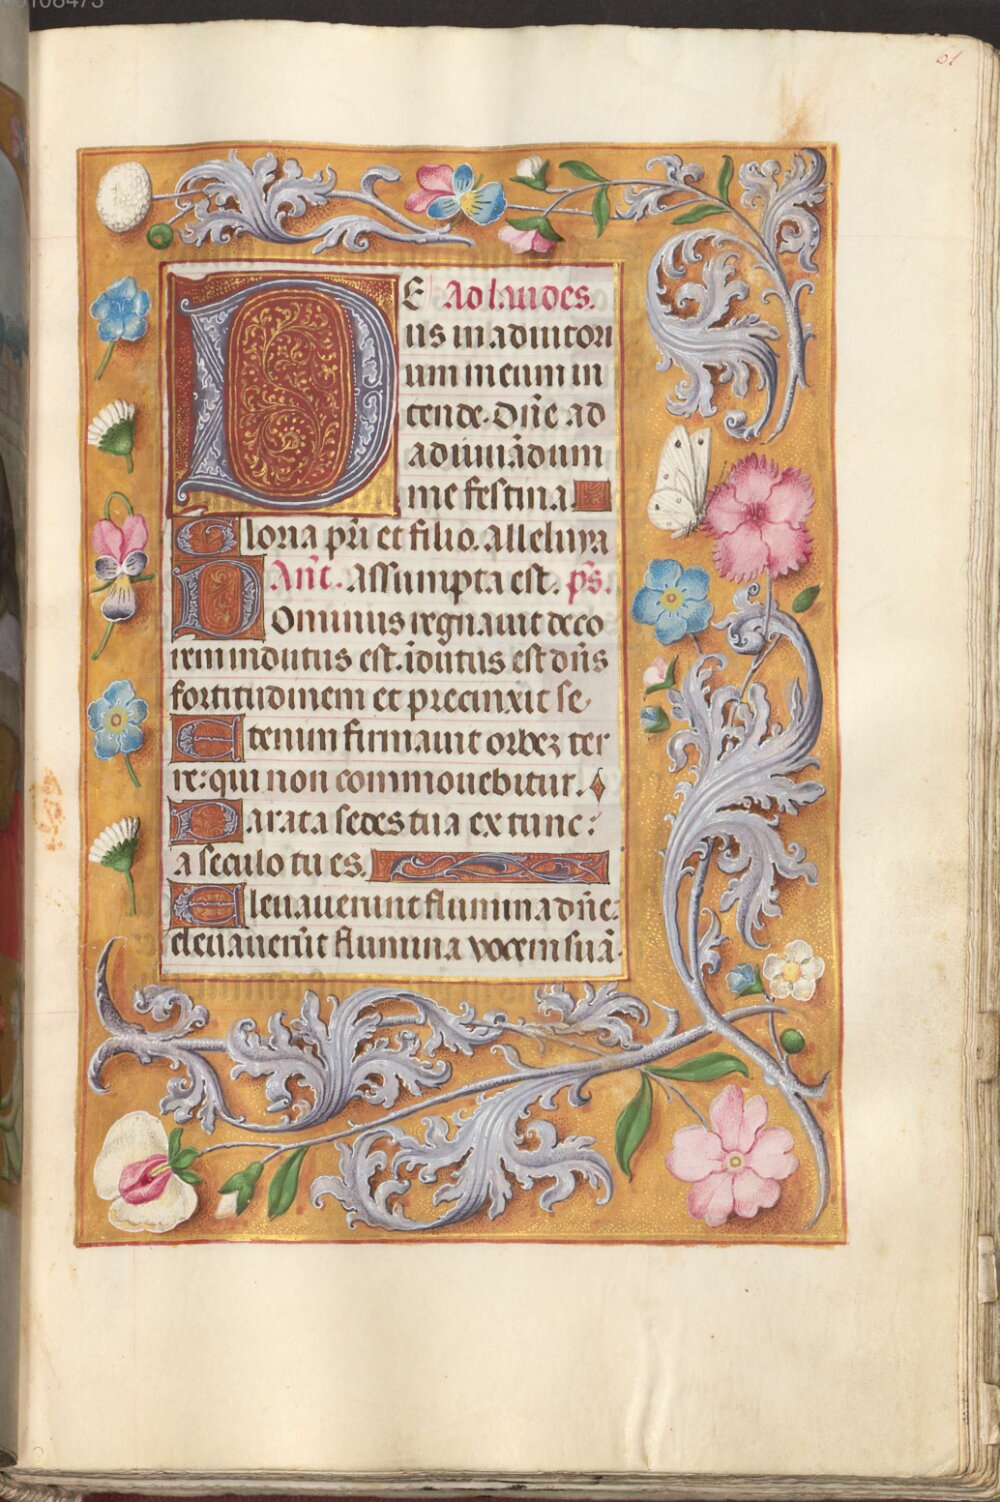 61
DE Ad laudes.
us in adiutori
um meum in
tende. Dñe ad
adiuuãdum
me festina.
Gloria pr̃i et filio. alleluya
Añt. Assumpta est. p̃s.
Dominus regnauit deco
rem indutus est. ĩdutus est dñs
fortitudinem et precinxit se
Etenim firmauit orbeꝫ ter
re: qui non commouebitur.
Parata sedes tua ex tunc:
a seculo tu es.
Eleuauerunt flumina dñe:
eleuauerũt flumina vocem suã.